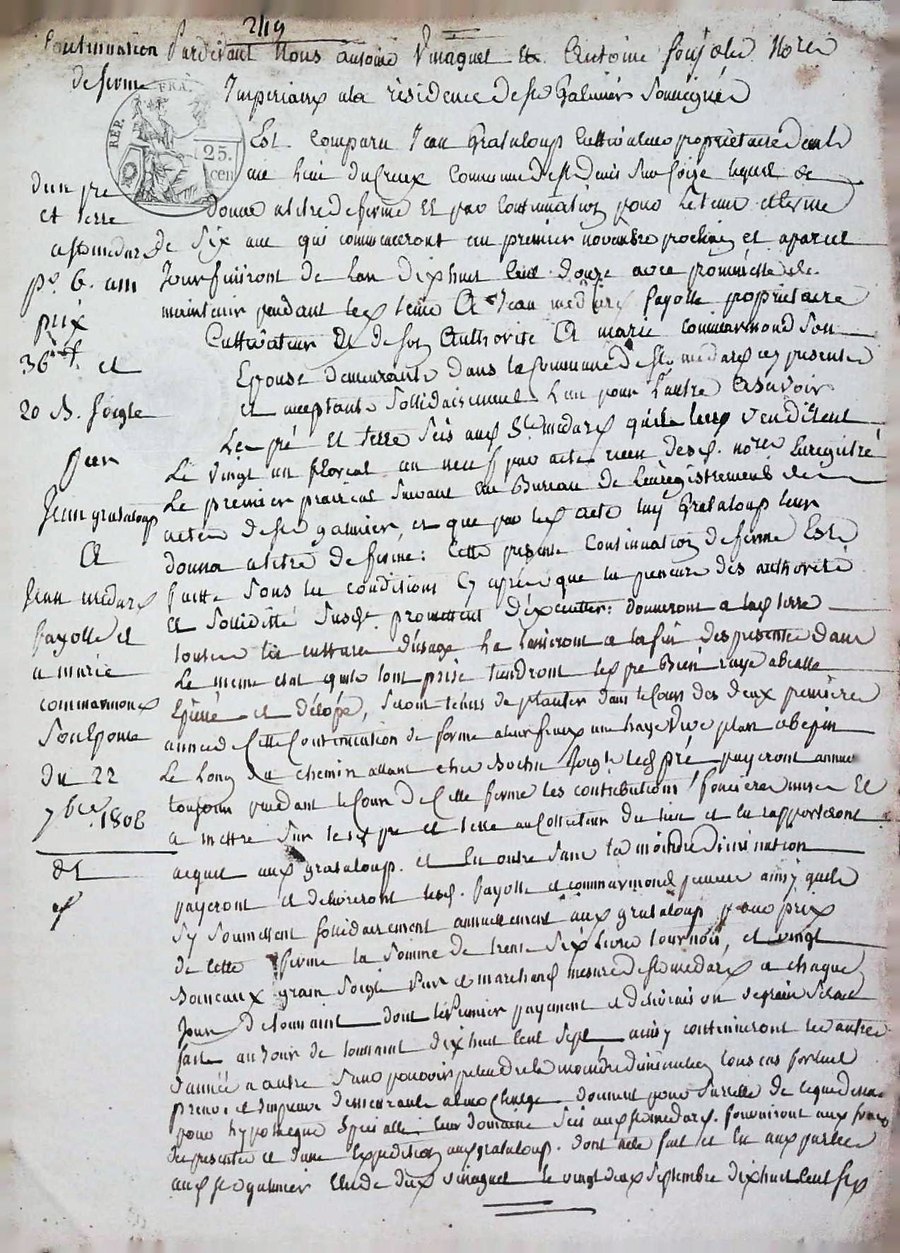 249
Continuation
de ferme
d'un pre
et terre
a st medard
pr. 6. ans
prix
36 et
20 B. soigle
par
Jean grataloup
A
Jean medard
fayolle et
a marie
commarmond
son Epouse
du 22
7bre. 1806
REP. FRA.
25.
cen
Pardevant Nous antoine Vinaguet & Antoine Nores
Imperiaux a la residence de st Galmier Soussignés
Est comparu Jean Grataloup Cultivateur proprietaire demt
au lieu du Creux Commune de st denis sur Coize lequel de
donne a titre de ferme Et par Continuation pour le tems et terme
de six ans qui commenceront au premier novembre prochain et a pareil
Jour finiront de l'an dix huit Cent douze avec promesse de
maintenir pendant led tems A Jean medard fayolle proprietaire
Cultivateur & de soy Authorité A marie commarmond Son
Epouse demeurants dans la Commune de st medard icy presents
et acceptants sollidairement l'un pour l'autre A savoir
Les pré et terre scis aud St medard qu'ils leur vendirent
Le vingt un floreal an neuf par acte recu desd. nores Enregistré
Le premier prairial suivant au Bureau de l'enregistrement des
actes de st galmier, et que par led acte led Grataloup leur
donna a titre de ferme: Cette presente Continuation de ferme Est
faitte sous les conditions Cy apres que les preneurs des authorité
et solliditté susdt. promettent d'éxecutter: donneront a lad terre
toutes les cultures d'usage La laisseront a la fin des presentes dans
Le meme etat qu'ils l'ont prise tiendront led pré Bien raye abealle
Epiné et , seront tenus de planter dans le Cours des deux premiere
années de Cette Continuation de ferme a leur fraix une haye Vive plan
Le Long du chemin allant chez led pré payeront annue
toujours pendant le Cours de Cette ferme les contributions foncieres mises Et
a mettre sur lesd pré et terre au Collecteur du lieu et en rapporteront
acquit aud grataloup. et En outre sans la moindre diminution
payeront et delivreront lesd. fayolle et commarmond preneurs ainsy quils
s'y soumettent sollidairement annuellement aud grataloup pour prix
de Cette ferme la somme de trente six Livres tournois, et vingt
Boisseaux grain soigle pur et marchand mesure de st medard a chaque
Jour de toussaint dont le Premier payement et delivraison se grain sera
fait au Jour de toussaint dix huit Cent sept ainsy continueront les autres
d'année a autre sans pouvoir pretendre la moindre diminution tous cas fortuit
prevus et impreveus demeurants a leur Charge donnent pour surette de ce que dessus
pour hypotheque speciale leur domaine scis aud st medard. fourniront aux fraix
des presentes et d'une Expedition aud grataloup. dont acte fait et lu aux parties
aud st galmier Etude dud Vinaguet le vingt deux Septembre dix huit Cent six